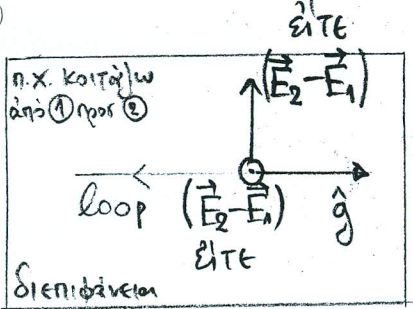 είτε
π.χ. κοιτάζω
από ① προς ②
(E⃗₂-E⃗₁)
loop
(E⃗₂-E⃗₁)
ĝ
είτε
διεπιφάνεια